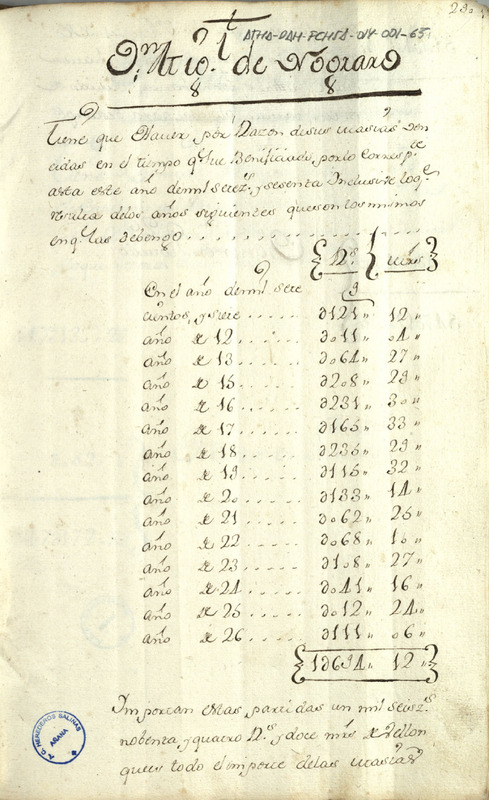 ATHA-DAH-FCHSA-014-001-65
D.n Mtio. de Nograro
Tiene que Haver, por Razon de sus ucasias Ven
cidas en el tiempo q.e fue Benificiado, por lo Corresp.te
asta este año de mil setez.s, y sesenta Inclusive loq.e
Resulta de los años siguientes que son los mismos
en q.e las debengo
R.s mrs
En el año de mil sete
cientos, y siete d121 12
año de 12 do11 o4
año de 13 do64 27
año de 15 d2o8 29
año de 16 d231 3o
año de 17 d165 33
año de 18 d235 29
año de 19 d115 32
año de 2o d133 14
año de 21 do62 26
año de 22 do68 1o
año de 23 d1o8 27
año de 24 do41 16
año de 25 do12 24
año de 26 d111 o6
1d694 12
Importan estas partidas un mil seisz.s
nobenta, y quatro R.s, y doce mrs de Vellon
que es todo el importe de las ucasias
A.C. HEREDEROS SALINAS
ARANA